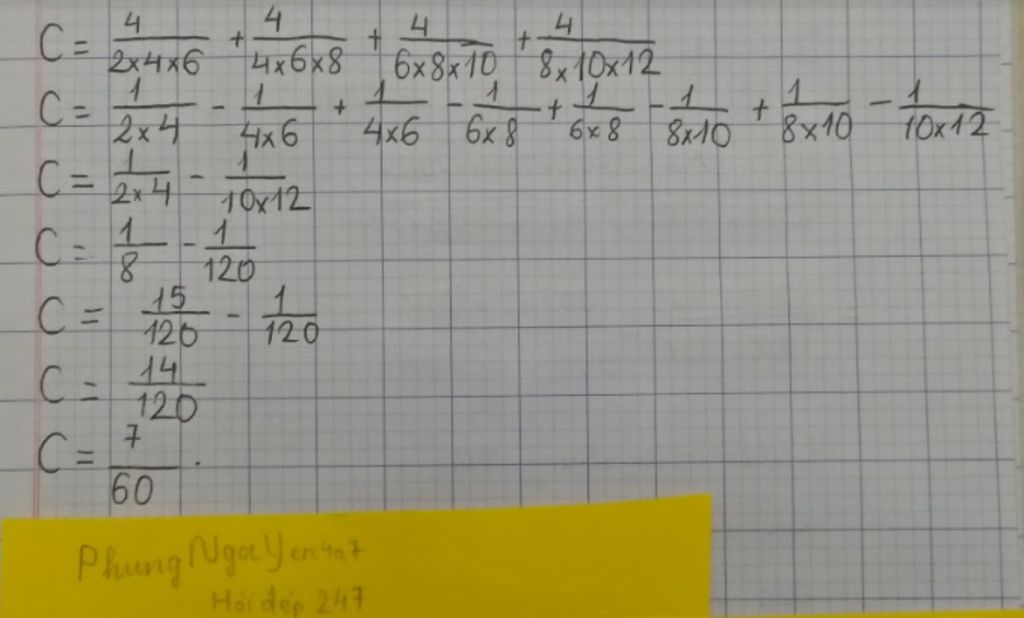 C = 4/2×4×6 + 4/4×6×8 + 4/6×8×10 + 4/8×10×12
C = 1/2×4 - 1/4×6 + 1/4×6 - 1/6×8 + 1/6×8 - 1/8×10 + 1/8×10 - 1/10×12
C = 1/2×4 - 1/10×12
C = 1/8 - 1/120
C = 15/120 - 1/120
C = 14/120
C = 7/60.
Phung Nga Yen4a7
Hỏi đáp 247